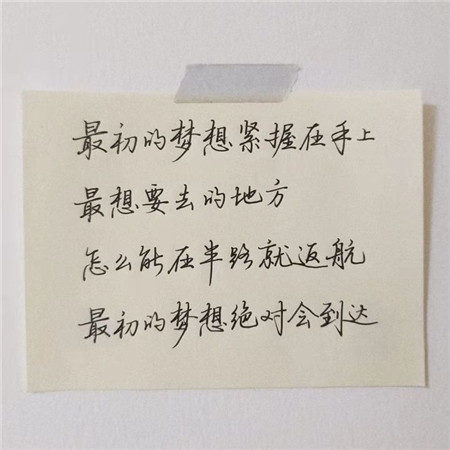 最初的梦想紧握在手上
最想要去的地方
怎么能在半路就返航
最初的梦想绝对会到达